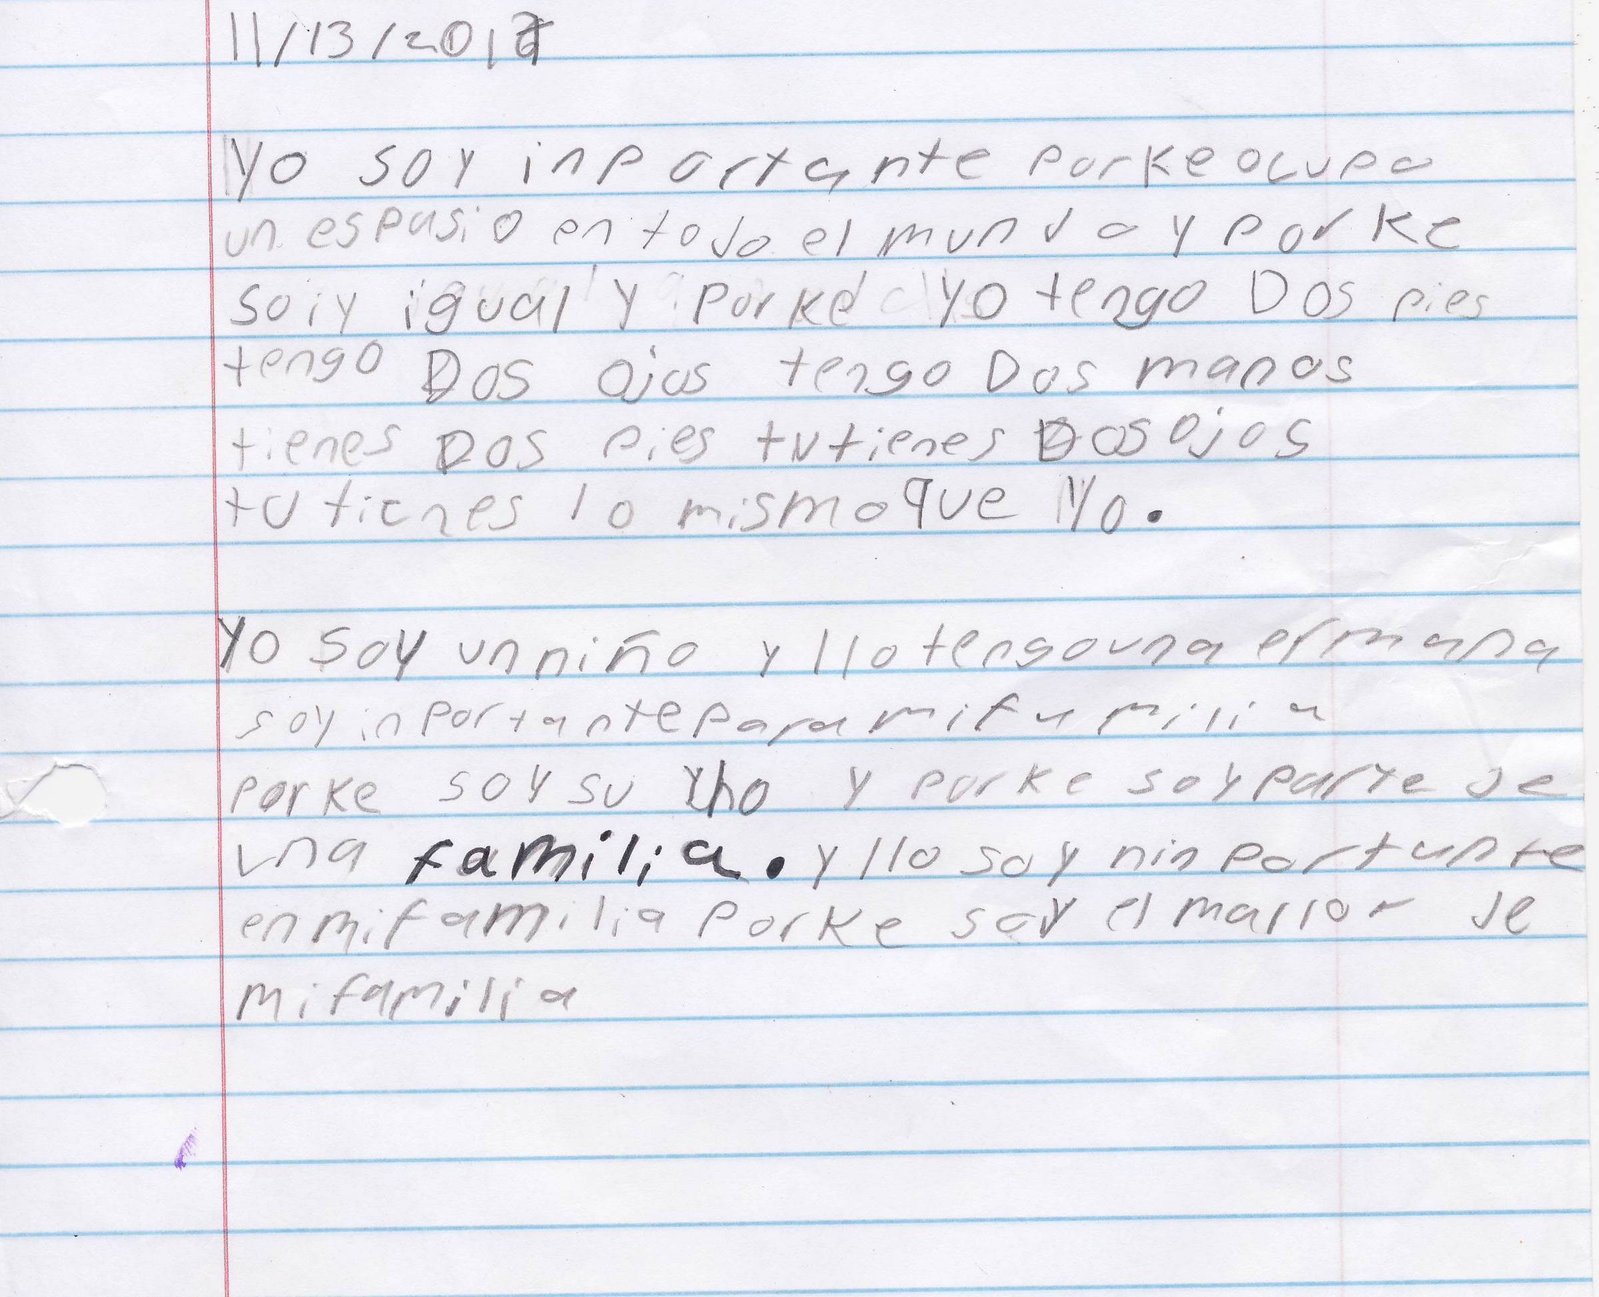 11/13/2017
Yo soy inportante porke ocupo
un espasio en todo el mundo y porke
soiy igual y porke yo tengo Dos pies
tengo Dos ojos tengo Dos manos
tienes Dos pies tu tienes Dos ojos
tu tienes lo mismo que Yo.
Yo soy un niño y llo tengo una ermana
soy inportante para mi familia
porke soy su y porke soy parte de
una familia. y llo soy ninportante
en mi familia porke soy el mallor de
mi familia